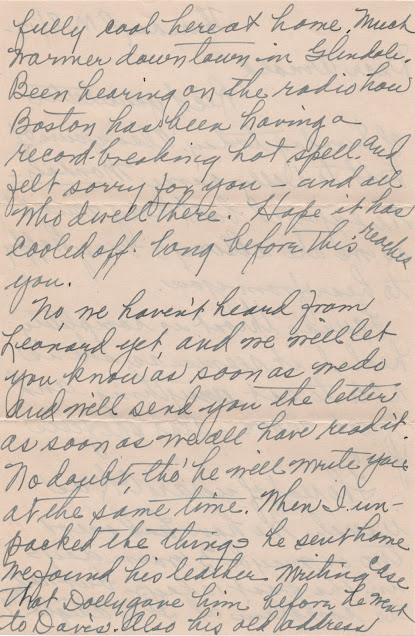 fully cool here at home. Much
warmer downtown in Glendale.
Been hearing on the radio how
Boston has been having a
record-breaking hot spell, and
felt sorry for you – and all
who dwell there. Hope it has
cooled off long before this reaches
you.
No we haven't heard from
Leonard yet, and we will let
you know as soon as we do
and will send you the letter
as soon as we all have read it.
No doubt tho' he will write you
at the same time. When I un-
packed the things he sent home
we found his leather writing case
that Dolly gave him before he went
to Davis. Also his old address